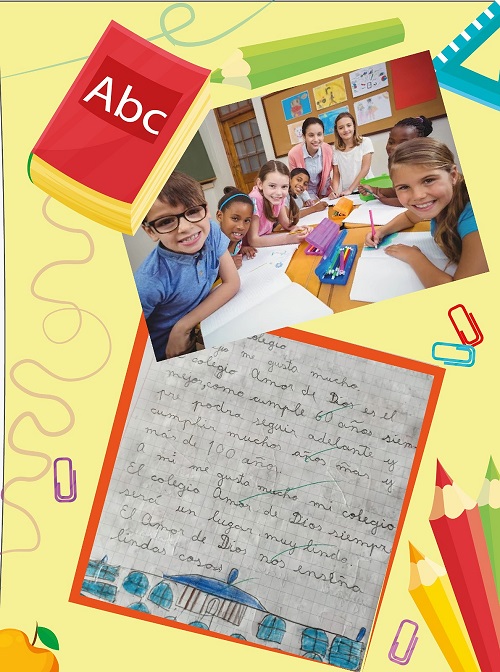 Abc
colegio
yo me gusta mucho
colegio Amor de Dios es el
mejor, como cumple 60 años siem
pre podra seguir adelante y
cumplir muchos años mas y
mas de 100 años.
A mi me gusta mucho mi colegio
El colegio Amor de Dios siempre
será un lugar muy lindo
El Amor de Dios nos enseña
lindas cosas